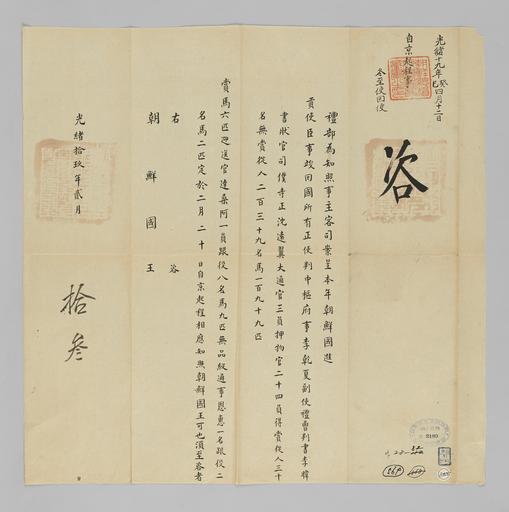 光緖十九年癸巳四月十二日
自京起程事
冬至使回便
咨
禮部爲知照事主客司案呈本年朝鮮國進
貢使臣事竣回國所有正使判中樞府事李乾夏副使禮曹判書李
書狀官司僕寺正沈遠翼大通官三員押物官二十四員得賞從人三十
名無賞從人二百三十九名馬一百九十九匹
賞馬六匹迎送官達桑阿一員跟役八名馬九匹無品級通事恩惠一名跟役二
名馬二匹定於二月二十日自京起程相應知照朝鮮國王可也須至咨者
右咨
朝鮮國王
光緖拾玖年貳月
拾叄